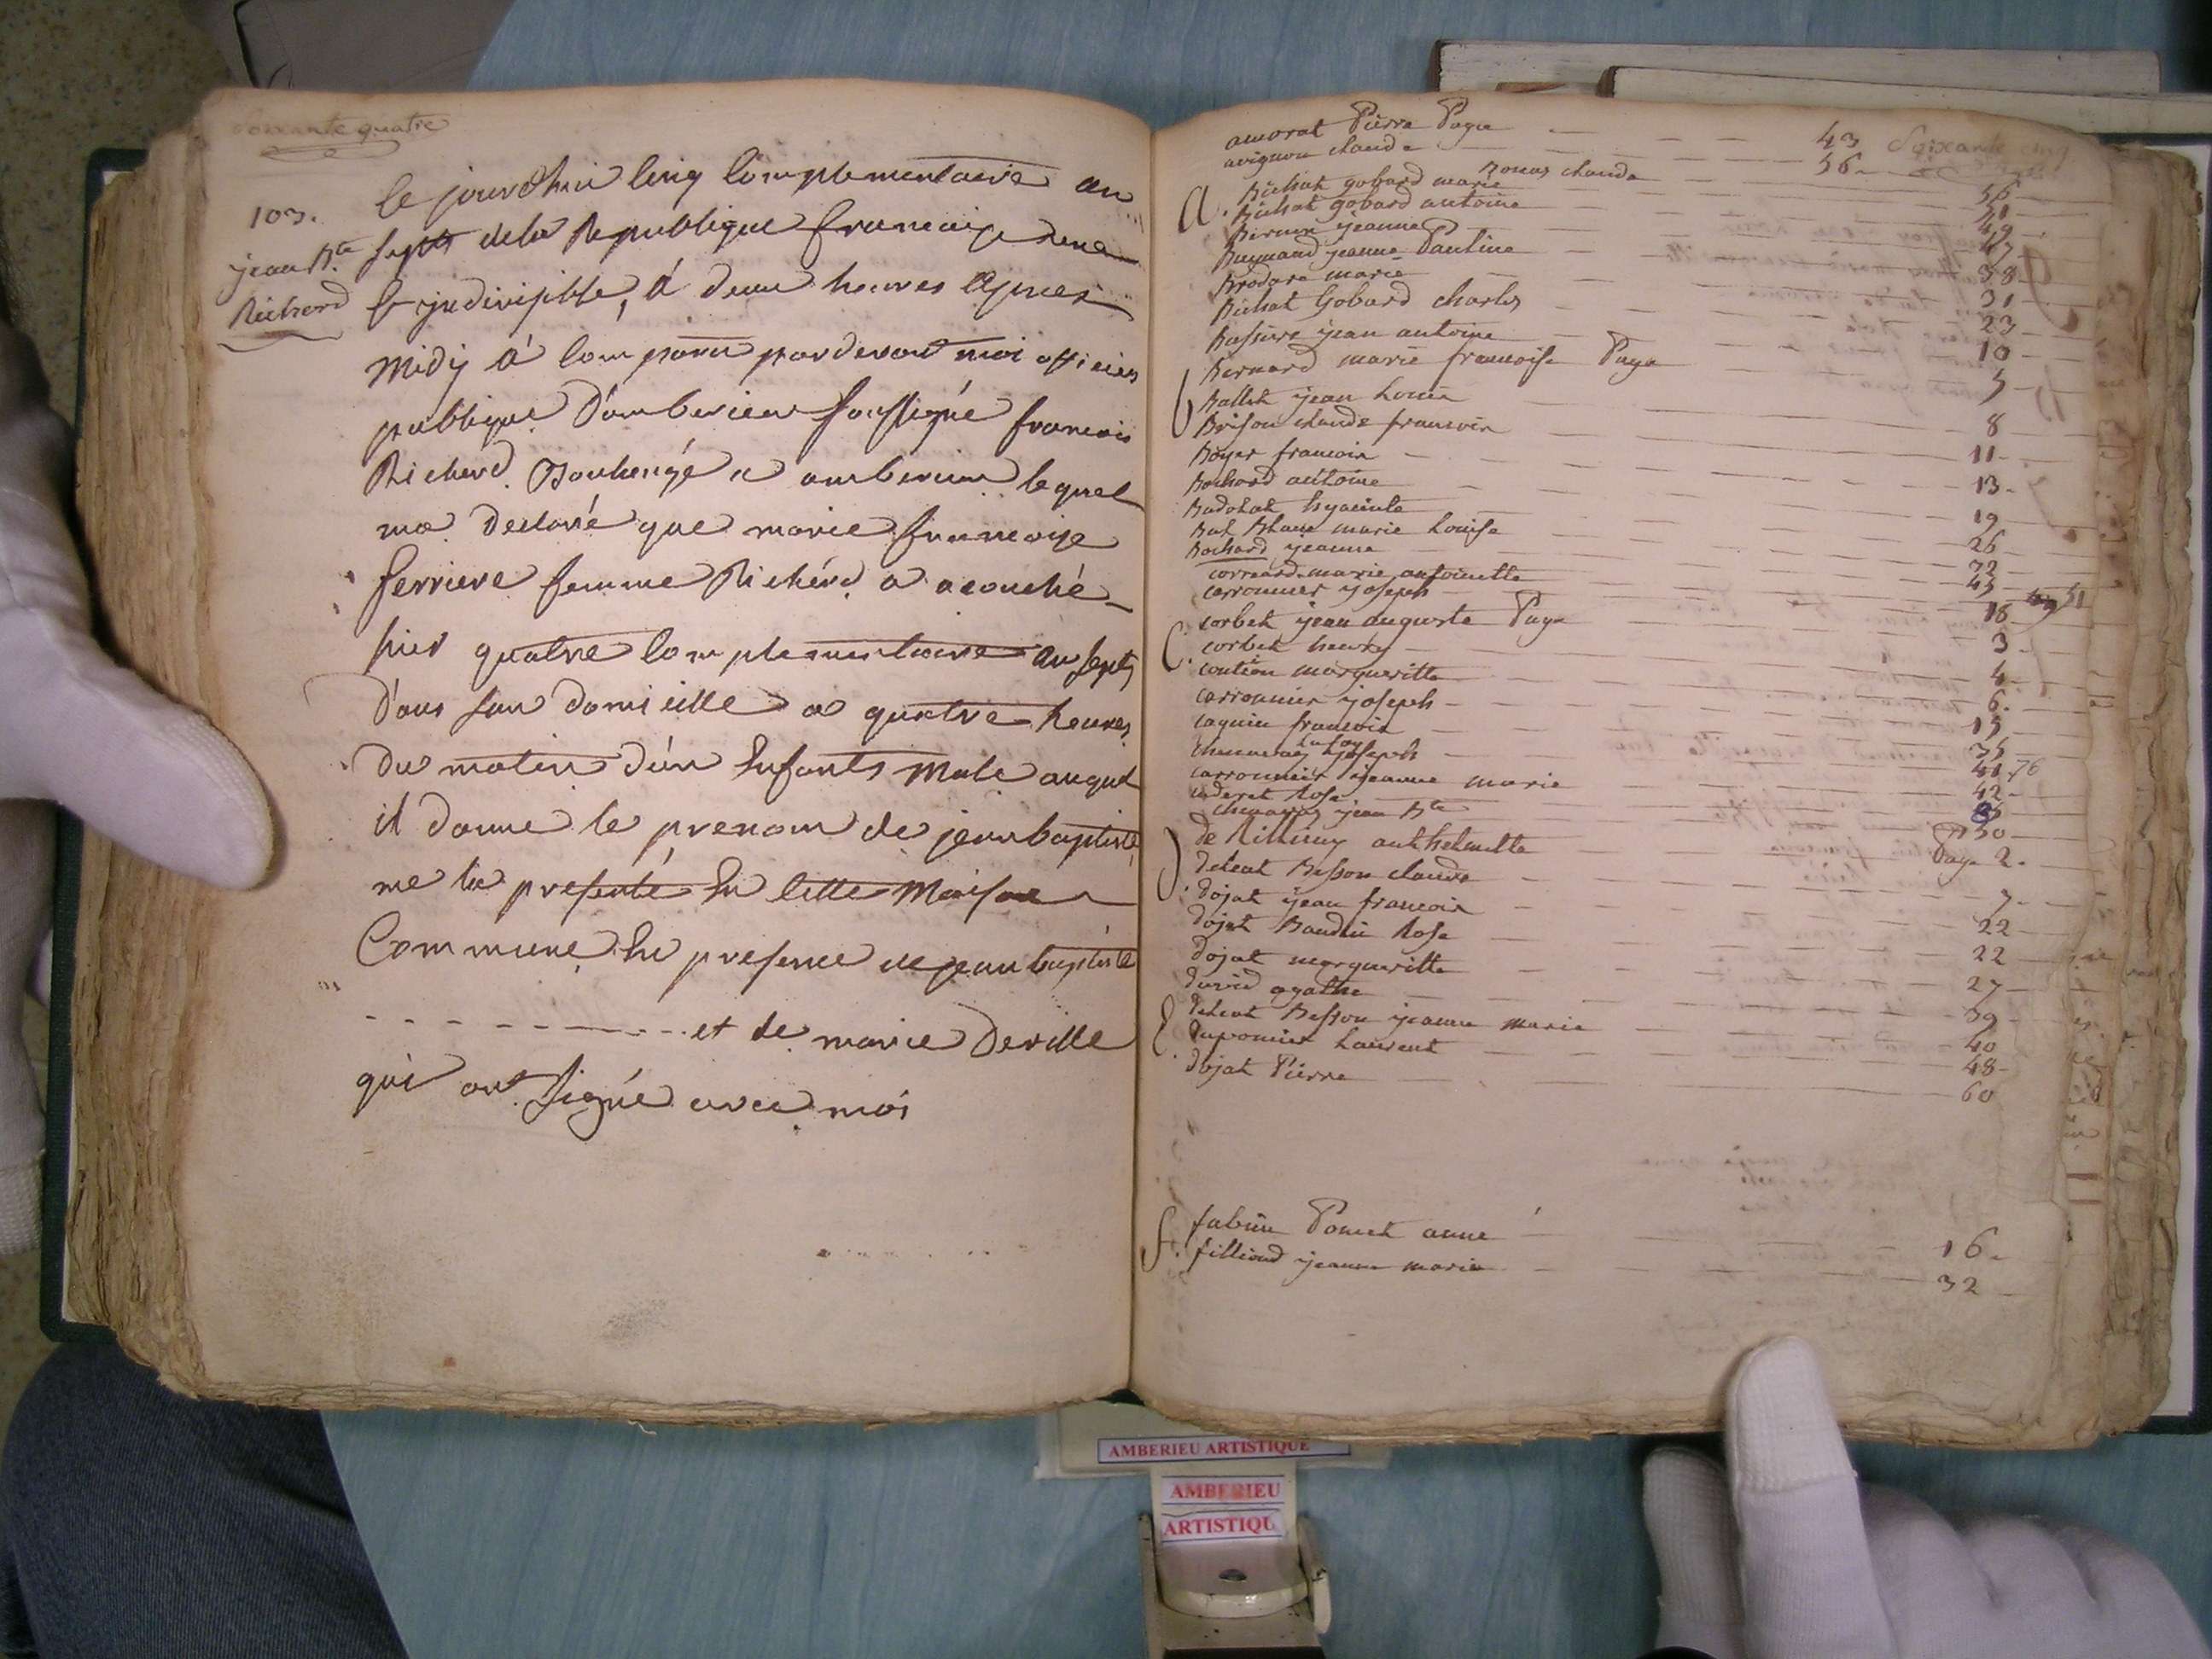 Soixante quatre
103.
jean Bte
Richerd
le jourd'hui cinq complementaire an
sept de la Republique francaise une
& jndivisible, à deux heures apres
midy à comparu pardevant moi officier
publique D'amberieu soussigné francois
Richerd Boulengé a amberieu lequel
ma declaré que marie francoise
ferriere femme Richérd a acouché
hier quatre complementaire an sept
dans son domicille a quatre heures
du matin d'un Enfants male auquel
il donne le prenom de jean baptiste
me la presenté En cette Maison
Commune En presence de jean baptiste
et de marie Deville
qui ont signé avec moi
Soixante cinq
amorat Pierre Page 43
avignon claude 56
Bonas claude
a.
Bichat gobard marie 56
Bichat gobard antoine 51
jeanne 49
jeanne Pauline 47
Brodare marie 38
Bichat Gobard charles 31
Bassure jean antoine 23
Bernard marie francoise Page 10
b
Ballet jean Louis 5
Brison claude francois 8
Boyer francois 11
Bochard antoine 13
Badolat hyacinte 19
Bat Blanc marie Louise 26
Bochard jeanne 32
correard marie antoinette 45
carronnier joseph 51
corbet jean auguste Page 18
C.
corbet henry 3
coution margueritte 4
carronnier joseph 6
caquin francois 15
joseph 35
carronnier jeanne marie 41 76
caderet Rose 42
chenavaz jean Bte
D
de Rillieux anthelmette 50
Deleat Besson claude Page 2
dojat jean francois 7
dojat Baudin Rose 22
dojat margueritte 22
david agathe 27
Deleat Besson jeanne marie 39
E.
Duponier Laurent 40
48
dojat Pierre 60
f.
fabin Pomet anne 16
filliond jeanne marie 32
AMBERIEU ARTISTIQUE
AMBERIEU
ARTISTIQU